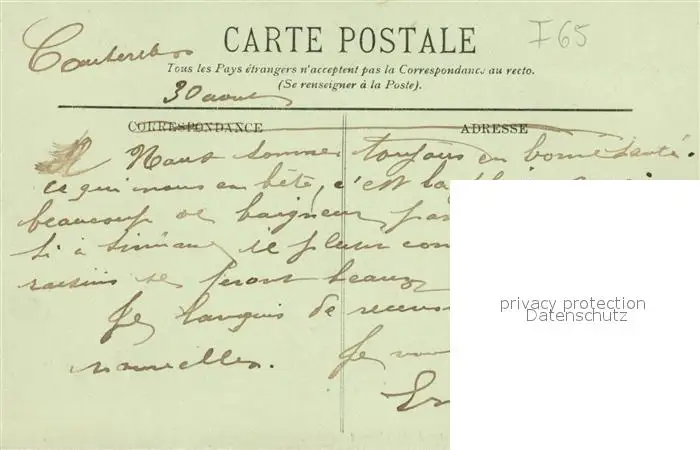 Cauterets
CARTE POSTALE
I65
Tous les Pays étrangers n'acceptent pas la Correspondance au recto.
(Se renseigner à la Poste).
30 aout
CORRESPONDANCE
ADRESSE
Nous sommes toujours en bonne santé.
ce qui nous embête, c'est la
beaucoup de baigneurs
si à il pleut
raisins se feront beaux
Je languis de recevoir
nouvelles. Je
privacy protection
Datenschutz